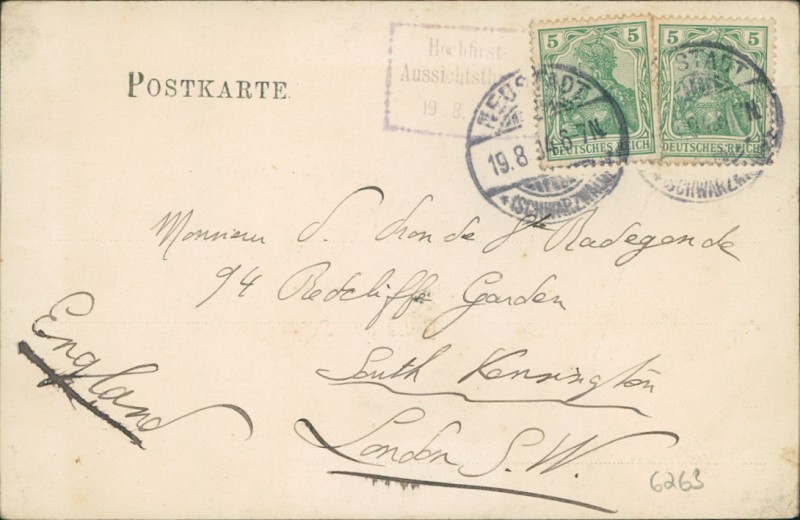 POSTKARTE
Hochfirst-
Aussichtsth
19 8.
5 5
DEUTSCHES REICH
5 5
DEUTSCHES REICH
NEUSTADT
19.8 04.6-7N
* (SCHWARZWALD)
STADT
7N
(SCHWARZWALD)
Monsieur S. de Ste Radegonde
94 Redcliffe Garden
South Kensington
London S.W.
England
6263